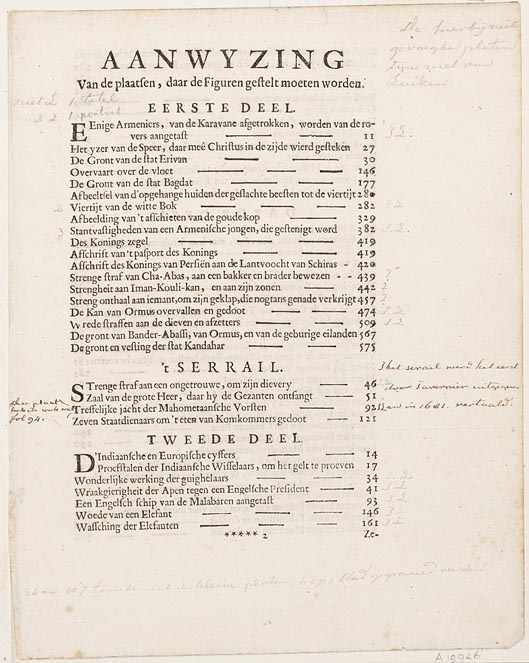 AANWYZING
Van de plaatsen, daar de Figuren gestelt moeten worden.
EERSTE DEEL.
EEnige Armeniers, van de Karavane afgetrokken, worden van de ro-
vers aangetast 11
Het yzer van de Speer, daar meê Christus in de zijde wierd gesteken 27
De Gront van de stat Erivan 30
Overvaart over de vloet 146
De Gront van de stat Bagdat 177
Afbeeltsel van d'opgehange huiden der geslachte beesten tot de viertijt 280
Viertijt van de witte Bok 282
Afbeelding van 't afschieten van de goude kop 329
Stantvastigheden van een Armenische jongen, die gestenigt werd 382
Des Konings zegel 419
Afschrift van 't pasport des Konings 419
Afschrift des Konings van Persiën aan de Lantvoocht van Schiras - 420
Strenge straf van Cha-Abas, aan een bakker en brader bewezen - - 439
Strengheit aan Iman-Kouli-kan, en aan zijn zonen 442
Streng onthaal aan iemant, om zijn geklap, die nogtans genade verkrijgt 457
De Kan van Ormus overvallen en gedoot 474
Wrede straffen aan de dieven en afzetters 509
De gront van Bander-Abassi, van Ormus, en van de geburige eilanden 567
De gront en vesting der stat Kandahar 575
't SERRAIL.
STrenge straf aan een ongetrouwe, om zijn dievery 46
Zaal van de grote Heer, daar hy de Gezanten ontfangt 51
Treffelijke jacht der Mahometaansche Vorsten 92
Zeven Staatdienaars om 't eten van Komkommers gedoot 121
TWEEDE DEEL.
D'Indiaansche en Europische cyffers 14
Proefstalen der Indiaansche Wisselaars, om het gelt te proeven 17
Wonderlijke werking der guighelaars 34
Wraakgierigheit der Apen tegen een Engelsche President 41
Een Engelsch schip van de Malabaren aangetast 93
Woede van een Elefant 146
Wassching der Elefanten 161
***** 2 Ze-
A 19926